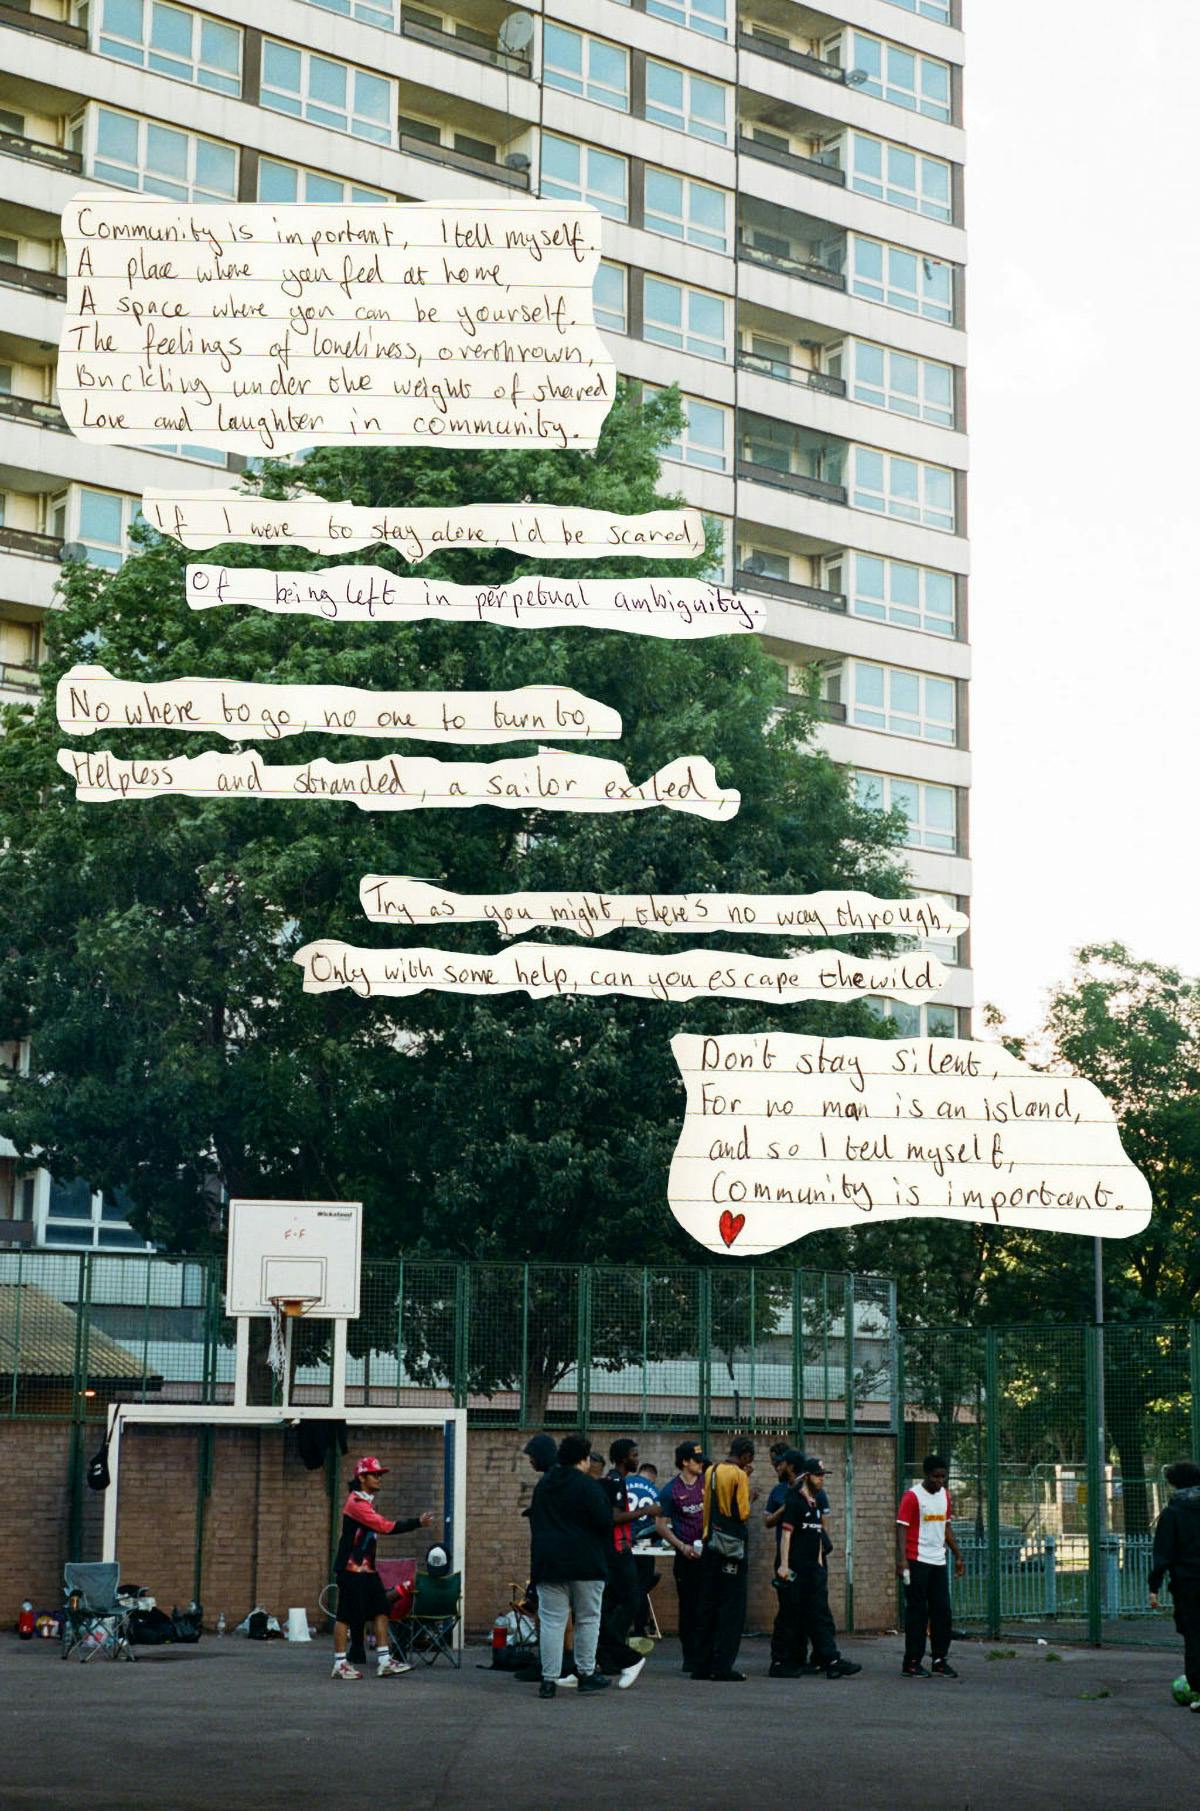 Community is important, I tell myself.
A place where you feel at home,
A space where you can be yourself.
The feelings of loneliness, overthrown,
Buckling under the weight of shared
Love and laughter in community.
If I were to stay alone, I'd be scared,
Of being left in perpetual ambiguity.
No where to go, no one to turn to,
Helpless and stranded, a sailor exiled,
Try as you might, there's no way through,
Only with some help, can you escape the wild.
Don't stay silent,
For no man is an island,
and so I tell myself,
Community is important.
F-F